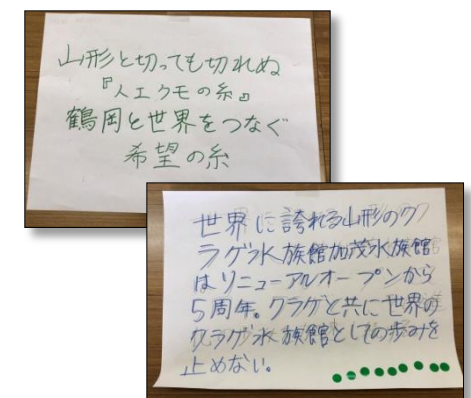 山形と切っても切れぬ
『人工クモの糸』
鶴岡と世界をつなぐ
希望の糸
世界に誇れる山形のク
ラゲ水族館加茂水族館
はリニューアルオープンから
5周年。クラゲと共に世界の
クラゲ水族館としての歩みを
止めない。